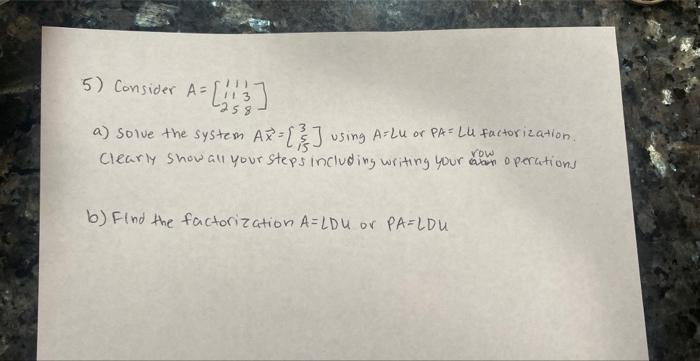 5) Consider A = [1 1 1
1 1 3
2 5 8]
a) Solve the system Ax⃗ = [3 5 15] using A=LU or PA=LU factorization.
Clearly show all your steps including writing your row operations
b) Find the factorization A=LDU or PA=LDU